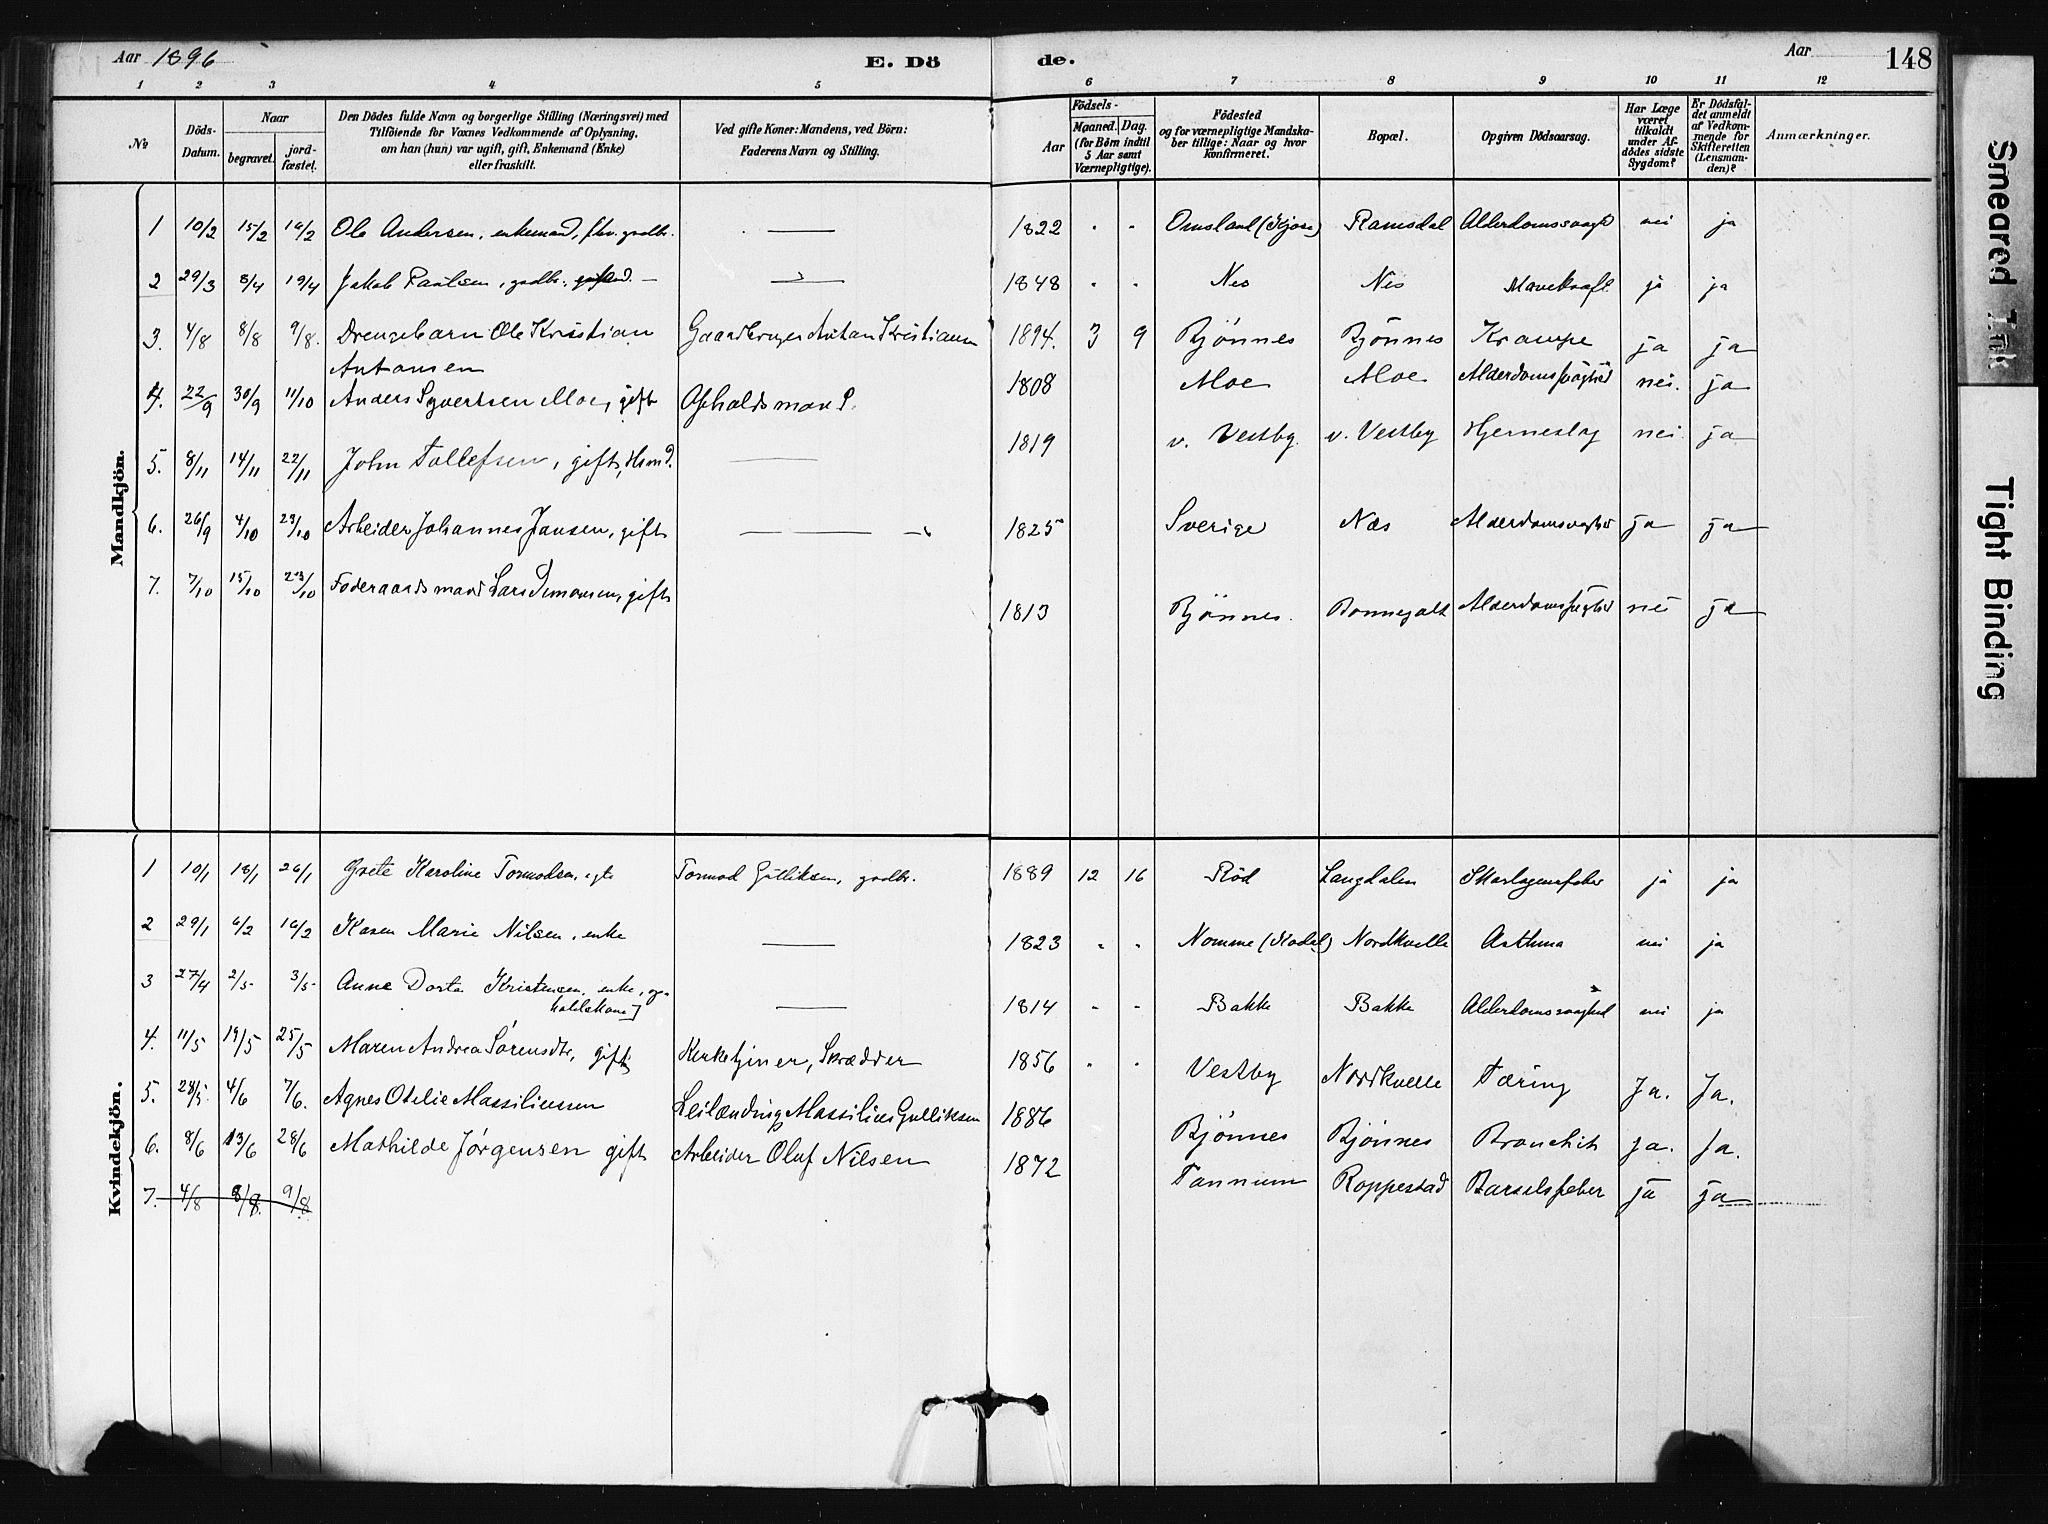 Aar 1896
E. Dö
de.
Aar
148
1 2 3 4 5 6 7 8 9 10 11 12
No
Döds-Datum.
Naar
begravet.
jordfæstet.
Den Dödes fulde Navn og borgerlige Stilling (Næringsvei) med
Tilföiende for Voxnes Vedkommende af Oplysning,
om han (hun) var ugift, gift, Enkemand (Enke)
eller fraskilt.
Ved gifte Koner: Mandens, ved Börn:
Faderens Navn og Stilling.
Födsels-
Aar
Maaned. Dag.
(for Börn indtil
5 Aar samt
Værnepligtige).
Födested
og for værnepligtige Mandskaber tillige: Naar og hvor
konfirmeret.
Bopæl.
Opgiven Dödsaarsag.
Har Læge
været
tilkaldt
under Afdödes sidste
Sygdom?
Er Dödsfaldet anmeldt
af Vedkommende for
Skifteretten
(Lensmanden)?
Anmærkninger.
Mandkjön.
1 10/2 15/2 16/2 Ole Andersen, enkemand, fhv. gaardbr. — 1822 " " Omsland (Kjose) Ramsdal Alderdomssvaghed nei ja
2 29/3 8/4 19/4 Jakob Paulsen, gadbr. — — 1848 " " Nes Nes Mavekræft ja ja
3. 4/8 8/8 9/8. Drengebarn Ole Kristian Gaardbruger Anton Kristiansen 1894. 3 9 Bjönnes Bjönnes Krampe ja ja
Antonsen
4. 22/9 30/9 11/10 Anders Syvertsen Moe, gift Opholdsmand. 1808 Moe Moe Alderdomssvaghed nei. ja
5. 8/11 14/11 22/11 John Tollefsen, gift, Hsmd. — 1819 v. Vestby. v. Vestby Hjerneslag nei. ja
6. 26/9 4/10 23/10 Arbeider Johannes Jansen, gift — — — 1825 Sverige Næs Alderdomsvaghed ja ja
7. 7/10 15/10 23/10 Foderaadsmand Lars Simonsen, gift 1813 Bjönnes. Bonnegolt Alderdomssvaghed nei ja
Kvindekjön.
1 10/1 18/1 26/1 Grete Karoline Tormodsen, egte Tormod Gulliksen, gadbr. 1889 12 16 Röd Langdalen Skarlagensfeber ja ja
2 29/1 6/2 16/2 Karen Marie Nilsen, enke — 1823 " " Nomme (Kodal) Nordkvelle Asthma nei ja
3 27/4 2/5 3/5 Anne Dorte Kristensen, enke, op-
holdskone] — 1814 " " Bakke Bakke Alderdomssvaghed nei ja
4. 11/5 19/5 25/5 Maren Andrea Sörensdtr, gift Kirketjener, Skrædder 1856 " " Vestby Nordkvelle Tæring Ja. Ja.
5. 28/5 4/6 7/6. Agnes Otelie Massiliussen Leilænding Massilius Gulliksen 1886 Bjönnes Bjönnes Bronchit ja. Ja.
6. 8/6 13/6 28/6 Mathilde Jörgensen gift Arbeider Oluf Nilsen 1872 Tannum Roppestad Barselsfeber ja ja
7. 4/8 8/8. 9/8.
Smeared Ink
Tight Binding